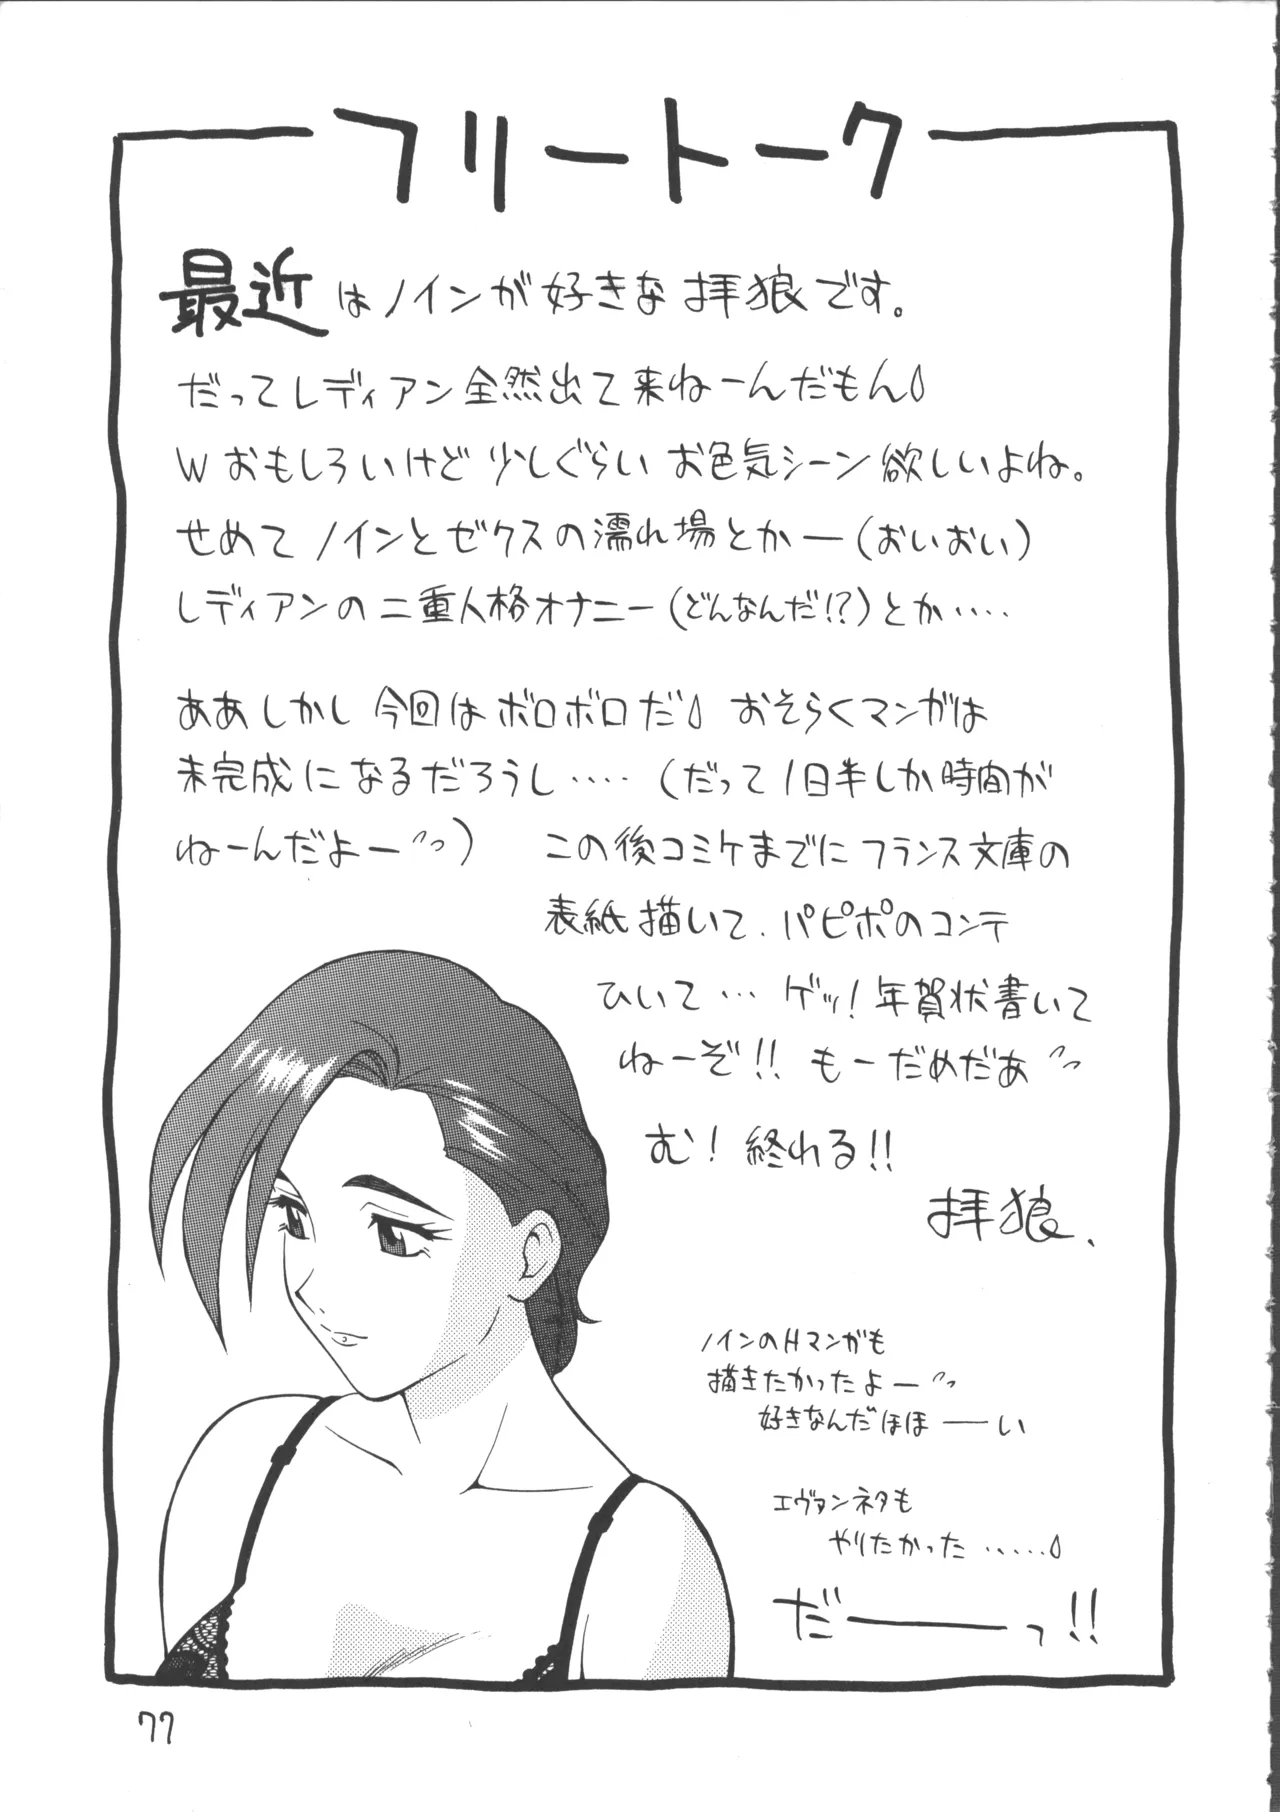 フリートーク
最近はノインが好きな拝狼です。
だってレディアン全然出て来ねーんだもん
Wおもしろいけど少しぐらいお色気シーン欲しいよね。
せめてノインとゼクスの濡れ場とかー(おいおい)
レディアンの二重人格オナニー(どんなんだ!?)とか‥‥
ああしかし今回はボロボロだ おそらくマンガは
未完成になるだろうし‥‥(だって1日半しか時間が
ねーんだよー)
この後コミケまでにフランス文庫の
表紙描いて、パピポのコンテ
ひいて…ゲッ!年賀状書いて
ねーぞ!!もーだめだあ
む!終れる!!
拝狼、
ノインのHマンガも
描きたかったよー
好きなんだほほーい
エヴァンネタも
やりたかった‥‥‥
だーーっ!!
77